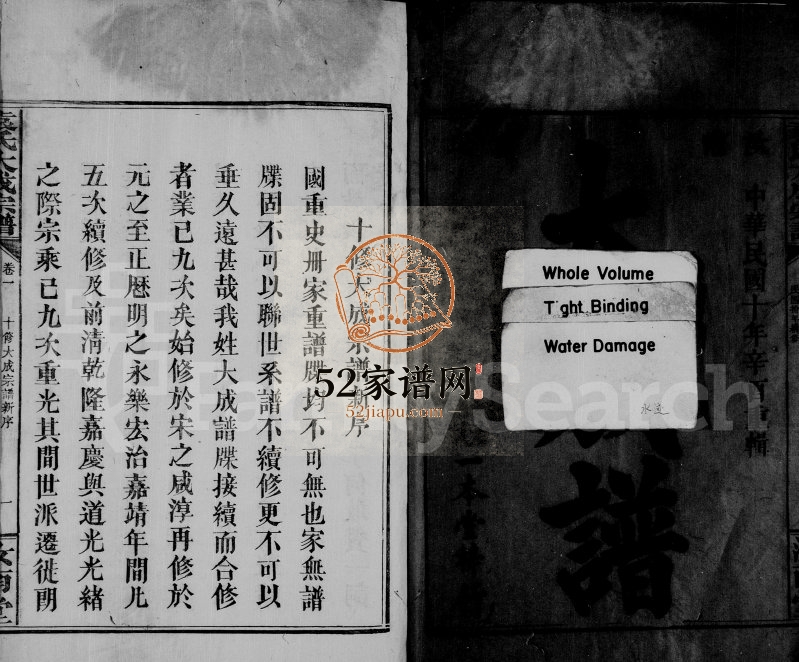 中華民國十年辛酉重輯
大
譜
一本堂
Whole Volume
Tight Binding
Water Damage
水漬
十修大成宗譜新序
國重史册家重譜牒均不可無也家無譜
牒固不可以聯世系譜不續修更不可以
垂久遠甚哉我姓大成譜牒接續而合修
者業已九次矣始修於宋之咸淳再修於
元之至正厯明之永樂宏治嘉靖年間凡
五次續修及前清乾隆嘉慶與道光光緒
之際宗乘已九次重光其間世派遷徙朗
氏大成宗譜
卷一
十修大成宗譜新序
一
52家谱网
52jiapu.com
FamilySearch